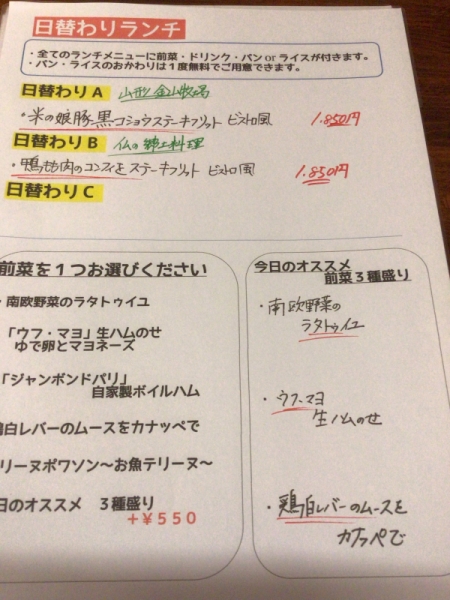 日替わりランチ
・全てのランチメニューに前菜・ドリンク・パン or ライスが付きます。
・パン・ライスのおかわりは１度無料でご用意できます。
日替わりA 山形 金山牧場
・米の娘豚 黒コショウステーキフリット ビストロ風 1.850円
日替わりB 仏の郷土料理
・鴨もも肉のコンフィとステーキフリット ビストロ風 1.850円
日替わりC
前菜を１つお選びください
・南欧野菜のラタトゥイユ
「ウフ・マヨ」生ハムのせ
ゆで卵とマヨネーズ
「ジャンボンドパリ」
自家製ボイルハム
鶏白レバーのムースをカナッペで
リーヌポワソン～お魚テリーヌ～
日のオススメ ３種盛り
＋￥５５０
今日のオススメ
前菜３種盛り
・南欧野菜の
ラタトゥイユ
・ウフ・マヨ
生ハムのせ
・鶏白レバーのムースを
カナッペで